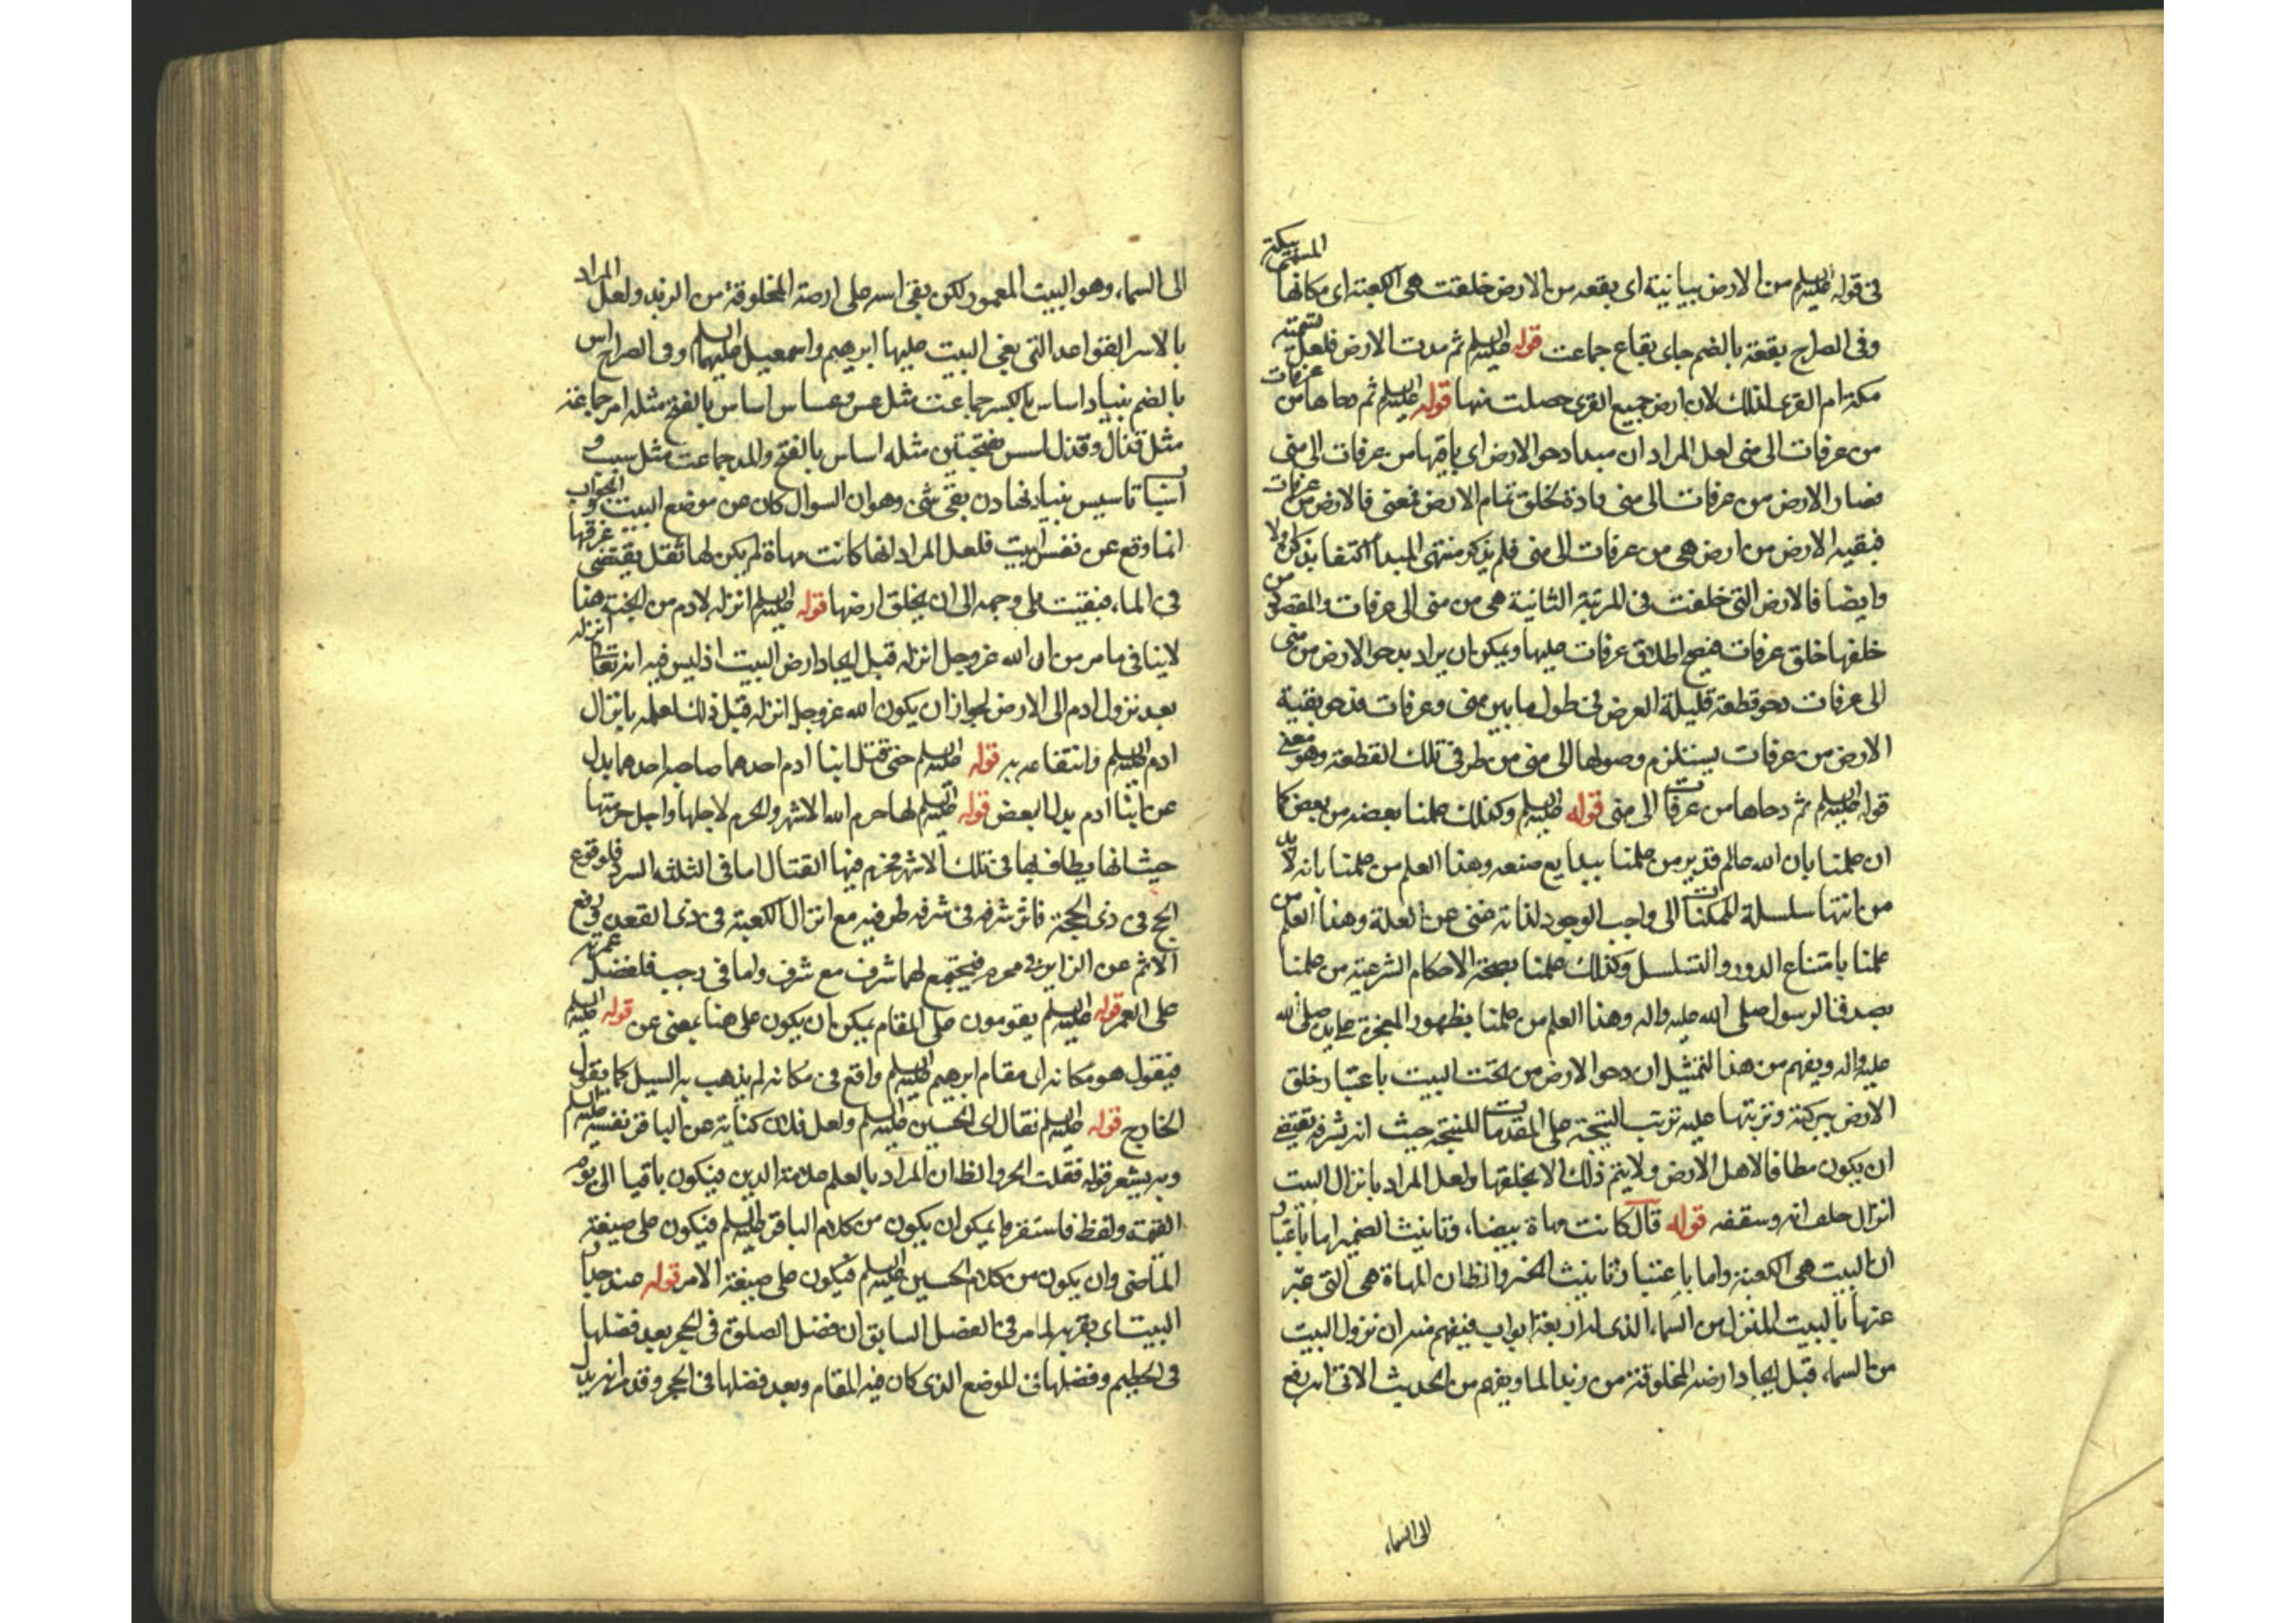 فى قوله عليه السلم من الارض بيانية اى بقعه من الارض خلقت هى الكعبة اى مكانها المسمى ببكة
وفى الصراح بقعة بالضم جاى بقاع جماعت قوله عليه السلم ثم مدت الارض فلعل تسمية
مكة ام القرى لذلك لان ارض جميع القرى حصلت منها قوله عليه السلم ثم دحاها من عرفات
من عرفات الى منى لعل المراد ان مبدا دحو الارض اى باقيها من عرفات الى منى
فصار الارض من عرفات الى منى مادة لخلق تمام الارض فمعنى فالارض من عرفات
فبقية الارض من ارض هى من عرفات الى منى فلم يذكر منتهى المبدا اكتفا بذكر اولا
وايضا فالارض التى خلقت فى المرتبة الثانية هى من منى الى عرفات والمقصود من
خلقها خلق عرفات فيصح اطلاق عرفات عليها ويمكن ان يراد بدحو الارض من منى
الى عرفات دحو قطعة قليلة العرض فى طول ما بين منى وعرفات فدحو بقية
الارض من عرفات يستلزم وصولها الى منى من طرفى تلك القطعة وهو معنى
قوله عليه السلم ثم دحاها من عرفات الى منى قوله عليه السلم وكذلك علمنا بعضه من بعض كما
ان علمنا بان الله عالم قدير من علمنا ببدايع صنعه وهذا العلم من علمنا بانه لا بد
من انتها سلسلة الممكنات الى واجب الوجود لذاته غنى عن العلة وهذا العلم من
علمنا بامتناع الدور والتسلسل وكذلك علمنا بصحة الاحكام الشرعية من علمنا
بصدق الرسول صلى الله عليه واله وهذا العلم من علمنا بظهور المعجزة على يده صلى الله
عليه واله ويفهم من هذا التمثيل ان دحو الارض من تحت البيت باعتبار خلق
الارض ببركته وترتبها عليه ترتب النتيجة على المقدمات للنتيجة حيث ان شرفه يقتضى
ان يكون مطافا لاهل الارض ولا يتم ذلك الا بخلقها ولعل المراد بانزال البيت
انزال حلقانه وسقفه قوله قال كانت مهاة بيضا، وتانيث الضمير اما باعتبار
ان البيت هى الكعبة واما باعتبار تانيث الخبر والظ ان المهاة هى التى عبر
عنها بالبيت المنزل من السماء الذى له اربعة ابواب فيفهم منه ان نزول البيت
من السماء، قبل ايجاد ارضه المخلوقة من زبد الماء ويفهم من الحديث الاتى انه رفع
الى السماء
الى السماء، وهو البيت المعمور لكن بقى اسه على ارضه المخلوقة من الزبد ولعل المراد
بالاس القواعد التى بنى البيت عليها ابرهيم واسمعيل عليهما السلم وفى الصراح اس
بالضم بنياد اساس بالكسر جماعت مثل عس وعساس اساس بالفتح مثله اسس جماعة
مثل قذال وقذل اسس بفتحتين مثله اساس بالفتح والمد جماعت مثل سبب و
اسباب تاسيس بنياد نهادن بقى شئ وهو ان السوال كان عن موضع البيت والجواب
انما وقع عن نفس البيت فلعل المراد انها كانت مهاة لم يكن لها ثقل يقتضى غرقها
فى الماء، فبقيت على وجهه الى ان يخلق ارضها قوله عليه السلم انزله لادم من الجنة هنا
لاينافى ما مر من ان الله عز وجل انزله قبل ايجاد ارض البيت اذ ليس فيه انه تعالى انزله
بعد نزول ادم الى الارض لجواز ان يكون الله عز وجل انزله قبل ذلك لعلمه بانزال
ادم عليه السلم وانتفاعه به قوله عليه السلم حتى قتل ابنا ادم احدهما صاحبه احدهما بدل
عن ابنا ادم بدل البعض قوله عليه السلم لها حرم الله الاشهر والحرم لاجلها واجل حرمتها
حيث انها يطاف بها فى تلك الاشهر فحرم فيها القتال اما فى الثلثه السرد فلوقوع
الحج فى ذى الحجة فاثر شرفه فى شرف طرفيه مع انزال الكعبة فى ذى القعدة ورفع
الاثم عن الزايرين فى محرم فيجتمع لهما شرف مع شرف واما فى رجب فلفضل عمرته
على العمر قوله عليه السلم يقومون على المقام يمكن ان يكون على هنا بمعنى عن قوله عليه السلم
فيقول هو مكانه اى مقام ابرهيم عليه السلم واقع فى مكانه لم يذهب به السيل كما يقول
الخارج قوله عليه السلم فقال لى الحسين عليه السلم ولعل فلان كناية عن الباقر نفسه عليه السلم
وبه يشعر قوله فقلت الخ والظ ان المراد بالعلم علامة الدين فيكون باقيا الى يوم
القيمة ولفظ فاستقر وا يمكن ان يكون من كلام الباقر عليه السلم فيكون على صيغة
الماضى وان يكون من كلام الحسين عليه السلم فيكون على صيغة الامر قوله عند حيال
البيت اى بقربه لما مر فى الفصل السابق ان فضل الصلوة فى الحجر بعد فضلها
فى الحطيم وفضلها فى الموضع الذى كان فيه المقام وبعد فضلها فى الحجر وقد مر انه يدل